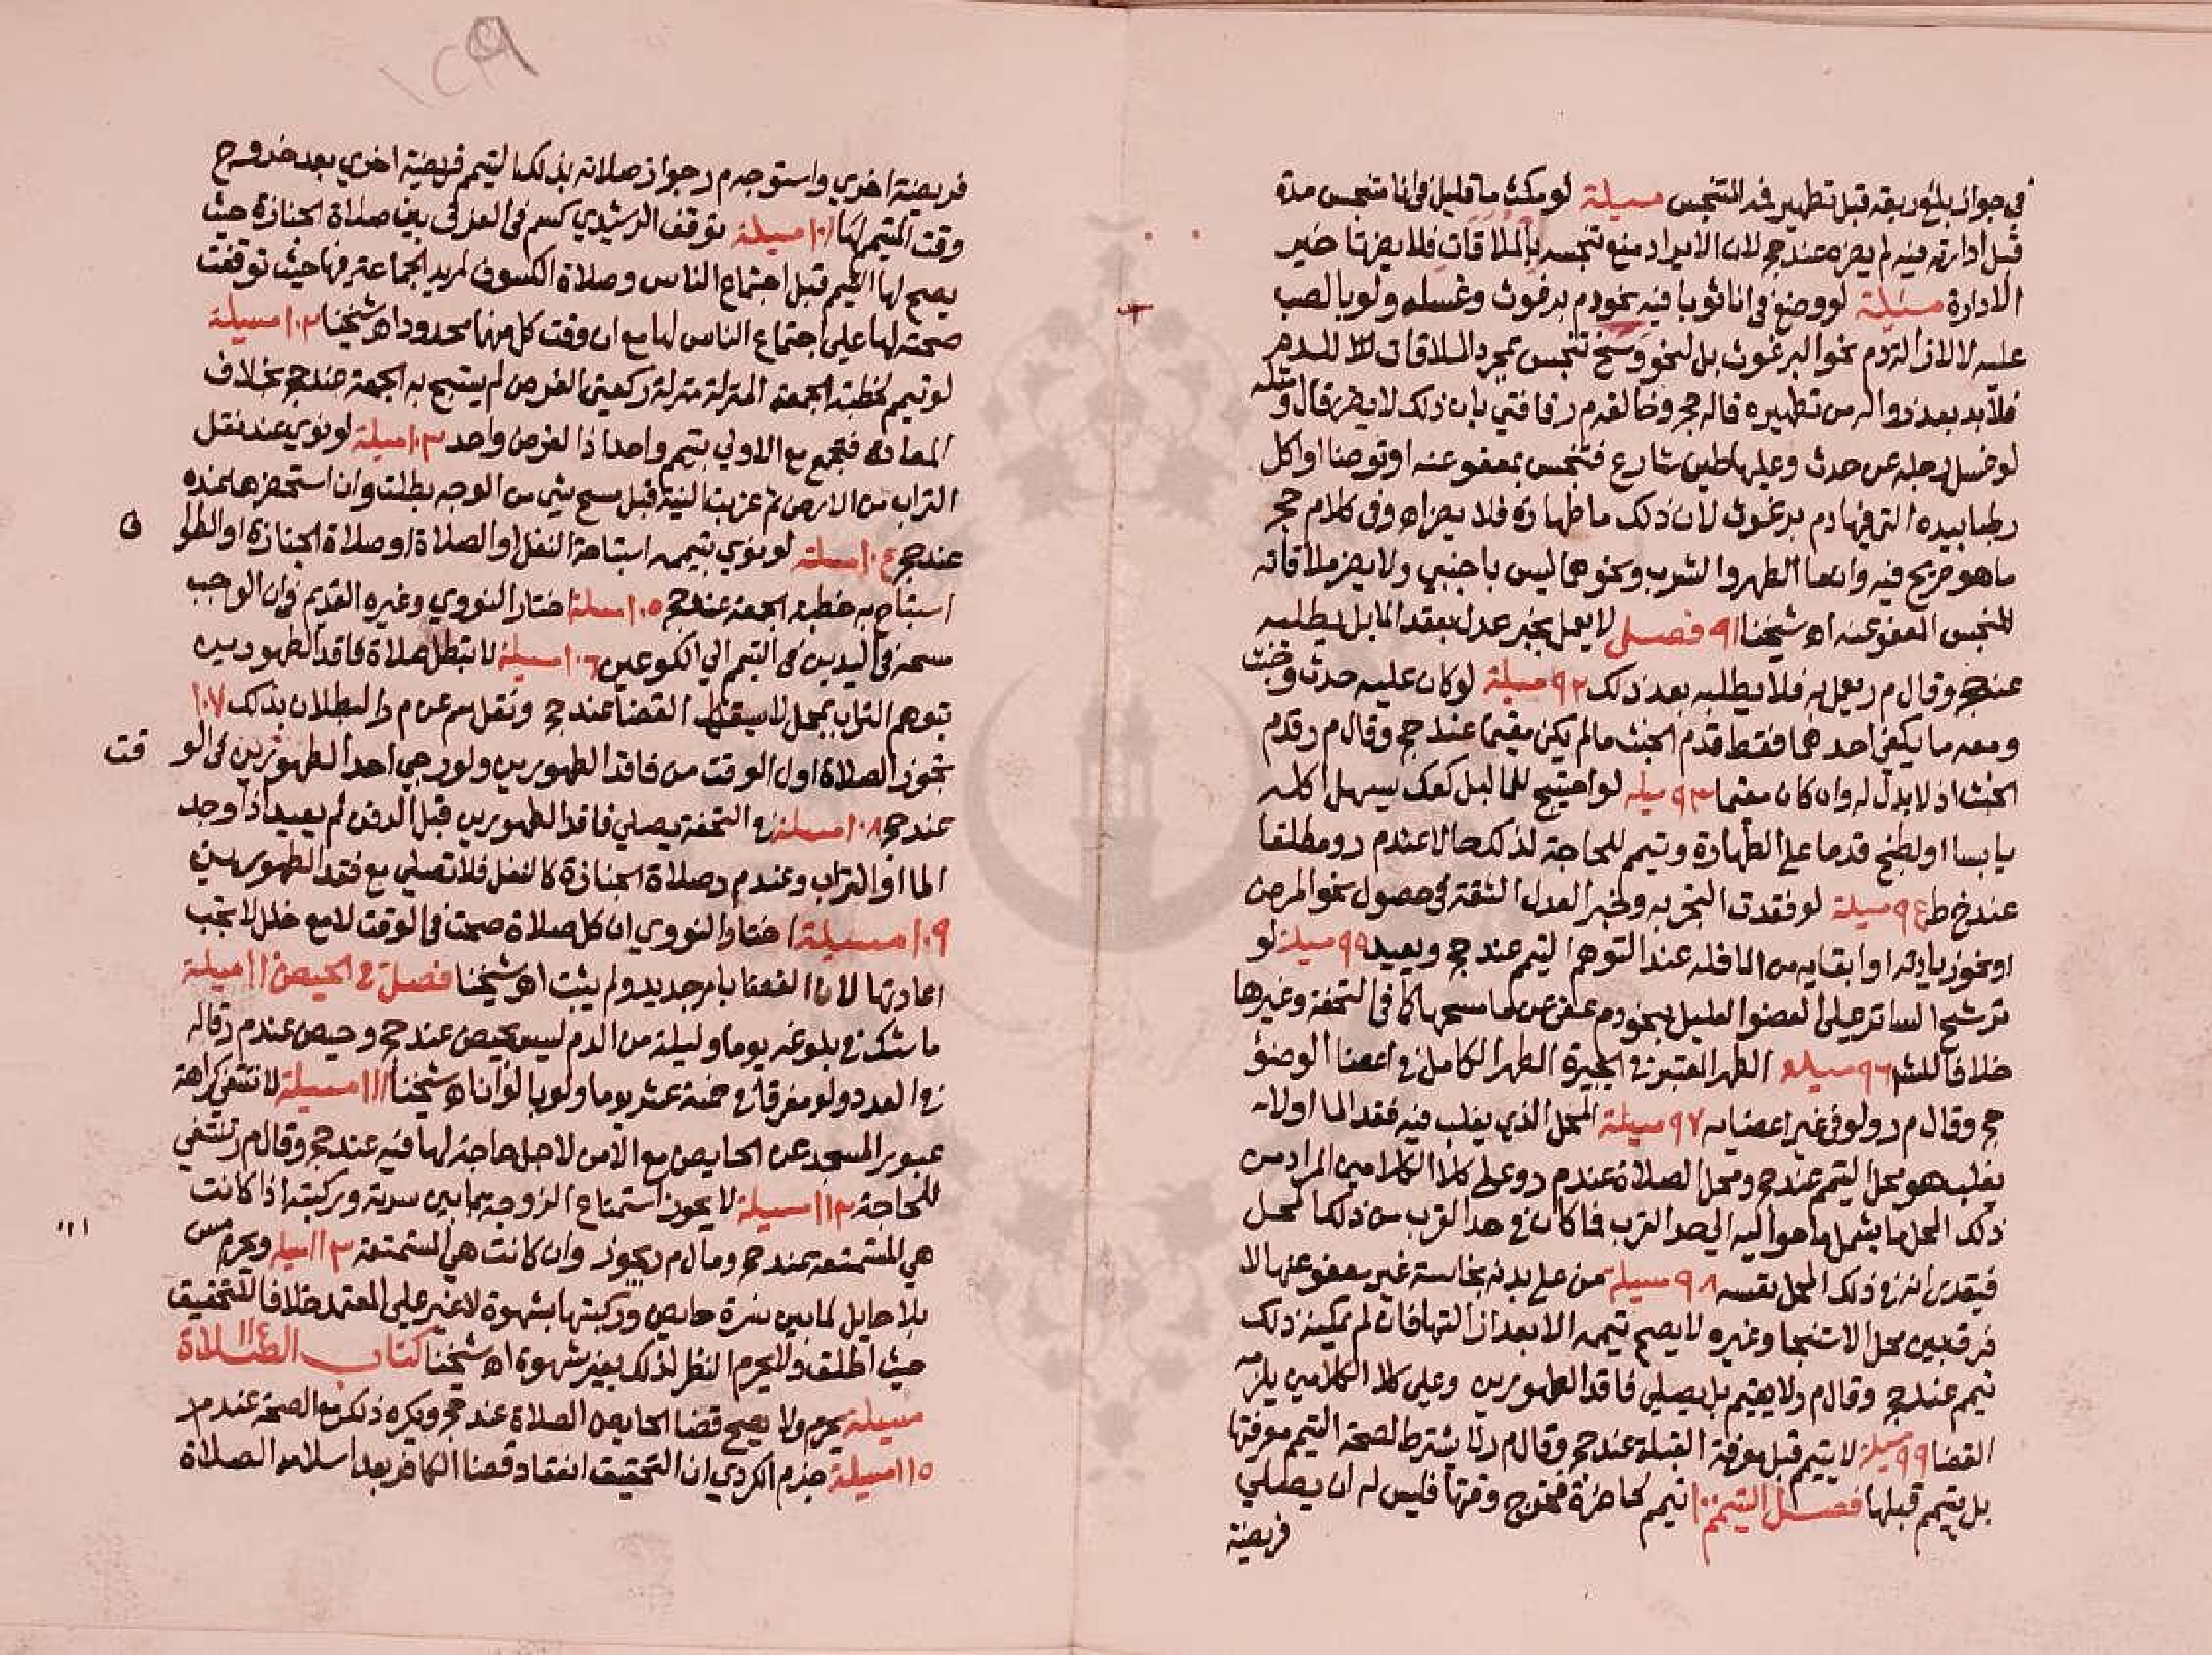 في جواز بلع ريقه قبل تطهير فمه المتنجس مسيلة لو مكث ما قليل في انا متنجس مدة
قبل ادارته فيه لم يضره عند حج لان الايراد منع تنجسه بالملاقات فلا يضر تاخير
الادارة مسئلة لو وضع في انا ثوبا فيه نحو دم برغوث وغسله ولو بالصب
عليه لا لازالة دم نحو البرغوث بل لنحو وسخ تنجس بمجرد الملاقات للدم
فلا بد بعد زواله من تطهيره قاله حج وخالفه م ر فافتي بان ذلك لا يضر قال ومثله
لو غسل رجله عن حدث وعليها طين شارع فتنجس بمعفو عنه او توضا او اكل
رطبا بيده التي فيها دم برغوث لان ذلك ما طهارة فلا يضر اه وفي كلام حج
ما هو صريح فيه وان ما الطهر والشرب ونحوهما ليس باجنبي ولا يضر ملاقاته
للنجس المعفو عنه اه شيخنا ٩١ فصل لا يعمل بخبر عدل بفقد الما بل يطلبه
عند حج وقال م ر يعمل به فلا يطلبه بعد ذلك ٩٢ مسيلة لو كان عليه حدث وخبث
ومعه ما يكفي احدهما فقط قدم الخبث ما لم يكن مقيما عند حج وقال م ر قدم
الخبث اذ لا بدل له وان كان مقيما ٩٣ مسيلة لو احتيج للما لبل كعك يسهل اكله
يابسا او لطبخ قدما علي الطهارة وتيمم للحاجة لذلك حالا عند م ر ومطلقا
عند خ ط ٩٤ مسيلة لو فقدت التجربة وخبر العدل الثقة في حصول نحو المرض
او نحو زيادته او ابقايه من الما فله عند التوهم التيمم عند حج ويعيد ٩٥ مسيلة لو
ترشح الساتر علي العضو العليل بنحو دم عفي عن ما مسحها كما في التحفة وغيرها
خلافا للشم ٩٦ مسيلة الطهر المعتبر في الجبيرة الطهر الكامل في اعضا الوضؤ
حج وقال م ر ولو في غير اعضايه ٩٧ مسيلة المحل الذي يغلب فيه فقد الما اولا
يغلب هو محل التيمم عند حج ومحل الصلاة عند م ر وعلي كلا الكلامين المراد من
ذلك المحل ما يشمل ما حواليه الي حد القرب فما كان في حد القرب من ذلك المحل
فيقدر انه في ذلك المحل نفسه ٩٨ مسيلة من علي بدنه نجاسة غير معفو عنها لا
فرق بين محل الاستنجا وغيره لا يصح تيممه الا بعد ازالتها فان لم يمكنه ذلك
تيمم عند حج وقال م ر لا يتيمم بل يصلي فاقد الطهورين وعلي كلا الكلامين يلزمه
القضا ٩٩ مسيلة لا يتيمم قبل معرفة القبلة عند حج وقال م ر لا يشترط لصحة التيمم معرفتها
بل يتيمم قبلها فصل التيمم ١٠٠ تيمم لحاضرة فخرج وقتها فليس له ان يصلي
فريضة
فريضة اخري واستوجه م ر جواز صلاته بذلك التيمم فريضة اخري بعد خروج
وقت المتيمم لها ١٠١ مسيلة توقف الرشيدي كسم في الفرق بين صلاة الجنازة حيث
يصح لها التيمم قبل اجتماع الناس وصلاة الكسوف لمريد الجماعة فيها حيث توقفت
صحته لها علي اجتماع الناس لها مع ان وقت كل منهما محدود اه شيخنا ١٠٢ مسيلة
لو تيمم لخطبة الجمعة المنزلة منزلة ركعتي الفرض لم يستبح به الجمعة عند حج بخلاف
المعادة فتجمع مع الاولي بتيمم واحد اذ الفرض واحد ١٠٣ مسيلة لو نوي عند نقل
التراب من الارض ثم عزبت النية قبل مسح شي من الوجه بطلت وان استحضرها عنده
عند حج ١٠٤ مسيلة لو نوي بتيممه استباحة النفل او الصلاة او صلاة الجنازة او الطوا
ف
استباح به خطبة الجمعة عند حج ١٠٥ مسيلة اختار النووي وغيره القديم في ان الواجب
مسحه في اليدين في التيمم الي الكوعين ١٠٦ مسيلة لا تبطل صلاة فاقد الطهورين
بتوهم التراب بمحل لا يسقط القضا عند حج ونقل سم عن م ر البطلان بذلك ١٠٧
تجوز الصلاة اول الوقت من فاقد الطهورين ولو رجي احد الطهورين في الو
قت
عند حج ١٠٨ مسيلة في التحفة يصلي فاقد الطهورين قبل الدفن ثم يعيد اذا وجد
الما او التراب وعند م ر صلاة الجنازة كالنفل فلا تصلي مع فقد الطهورين
١٠٩ مسيلة اختار النووي ان كل صلاة صحت في الوقت لا مع خلل لا تجب
اعادتها لان القضا بامر جديد ولم يثبت اه شيخنا فصل في الحيض ١١٠ مسيلة
ما شك في بلوغه يوما وليلة من الدم ليس بحيض عند حج وحيض عند م ر قاله
في العدد ولو مفرقا في خمسة عشر يوما ولو بالفوانا اه شيخنا ١١١ مسيلة لا تنتفي كراهة
عبور المسجد عن الحايض مع الامن لاجل حاجة لها فيه عند حج وقال م ر تنتفي
للحاجة ١١٢ مسيلة لا يجوز استمتاع الزوجة بما بين سرته وركبته اذا كانت
هي المستمتعة عند حج وقال م ر يجوز وان كانت هي المستمتعة ١١٣ مسيلة ويحرم مس
بلا حايل لما بين سرة حايض وركبتها بشهوة لا غير علي المعتمد خلافا للتحقيق
حيث اطلقه ولا يحرم النظر لذلك بغير شهوة اه شيخنا كتاب الصلاة ١١٤
مسيلة يحرم ولا يصح قضا الحايض الصلاة عند حج ويكره ذلك مع الصحة عند م ر
١١٥ مسيلة جزم الكردي ان التحقيق انعقاد قضا الكافر بعد اسلامه الصلاة